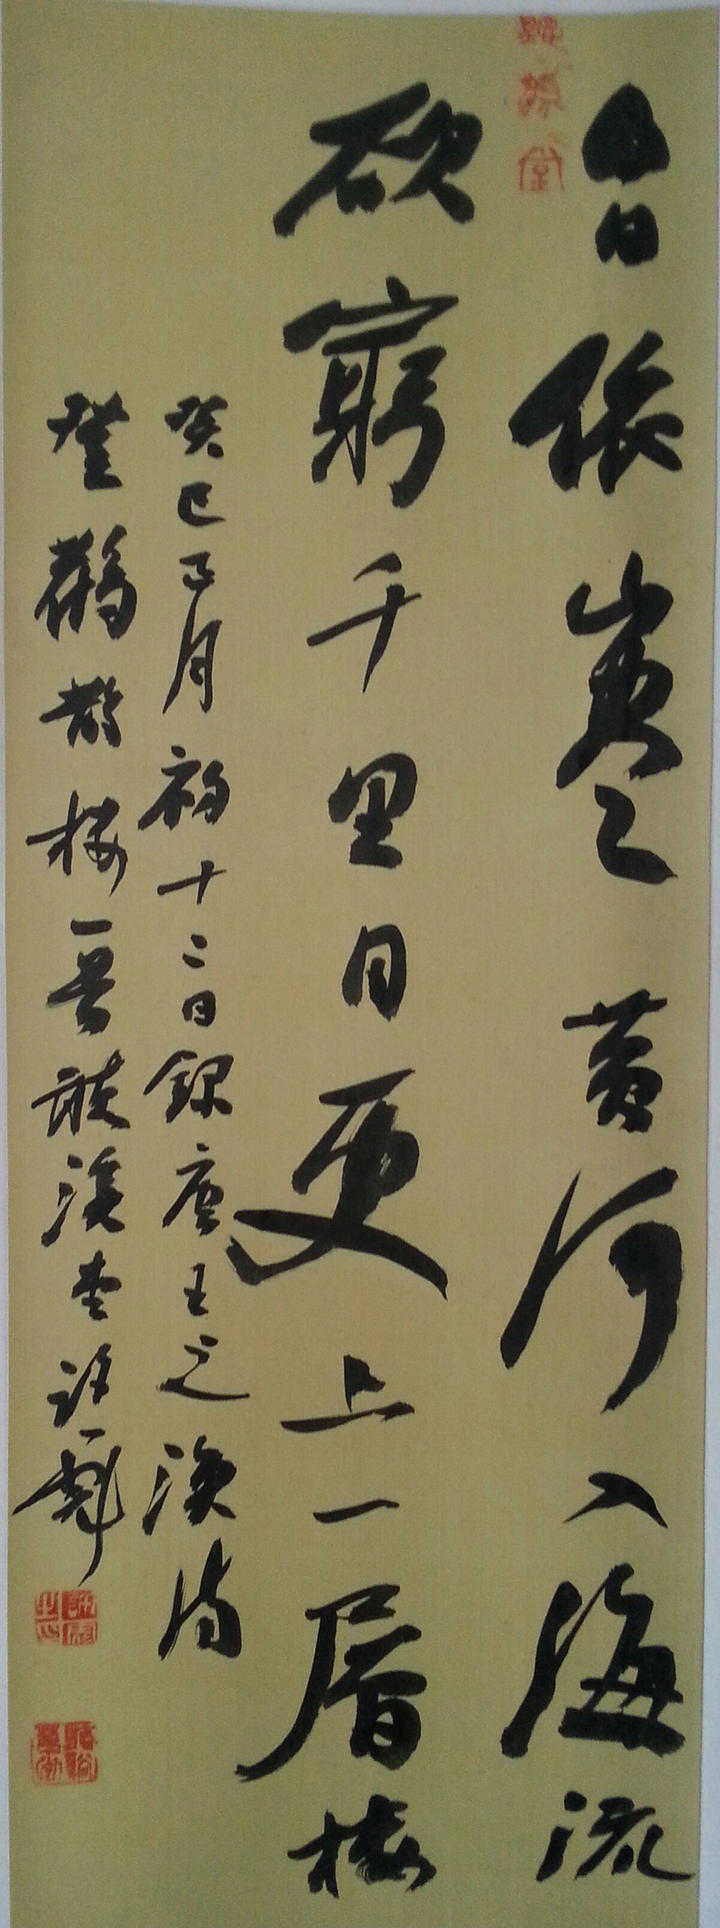 白日依山盡黃河入海流
欲窮千里目更上一層樓
癸巳正月初十二日錄唐王之渙詩
登鸛鵲樓一首溪堂許